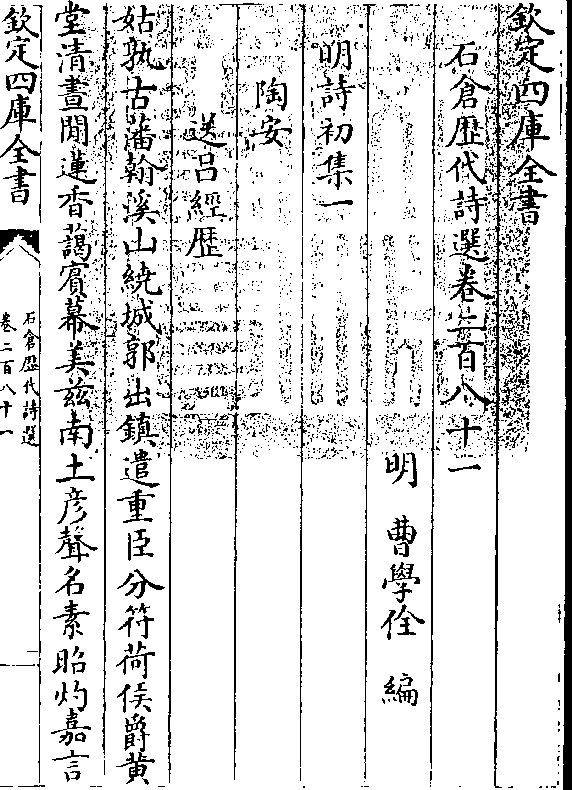 欽定四庫全書
石倉歴代詩選卷二百八十一
明 曹學佺 編
明詩初集一
陶安
送吕經歴
姑孰古藩翰溪山繞城郭出鎮遣重臣分符荷侯爵黄
堂清晝閒蓮香藹賓幕美兹南土彦聲名素昭灼嘉言
欽定四庫全書
石倉歴代詩選
卷二百八十一